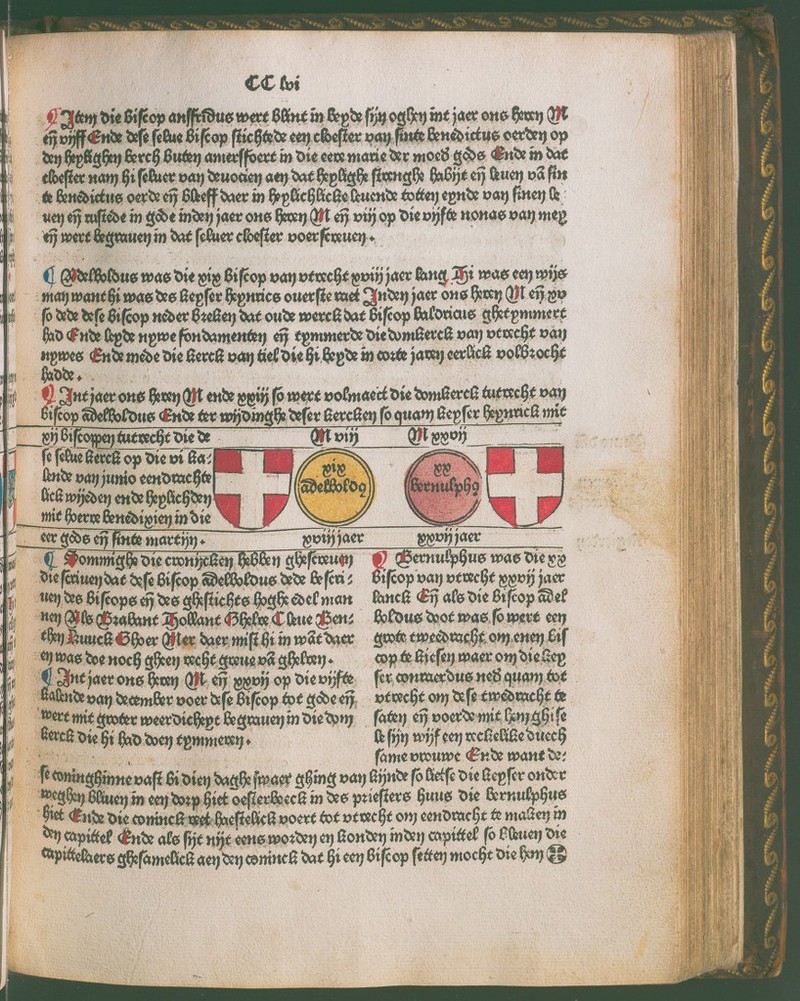 CC lvi
Item die biscop ansfridus wert blint in beyde sijn oghen int jaer ons heren M
eñ vijff Ende dese selue biscop stichtede een cloester van sinte benedictus oerden op
den heylighen berch buten amersfoert in die eere marie der moed gods Ende in dat
cloester nam hi seluer van deuocien aen dat heylighe strenghe habijt eñ leuen vā sin
te benedictus oerde eñ bleeff daer in heylichlicke leuende totten eynde van sinen le
uen eñ rustede in gode inden jaer ons heren M eñ viij op die vijfte nonas van mey
eñ wert begrauen in dat seluer cloester voerscreuen.
Adelboldus was die xix biscop van vtrecht xviij jaer lang Hi was een wijs
man want hi was des keyser heynrics ouerste raet Inden jaer ons heren M eñ xv
so dede dese biscop neder breken dat oude werck dat biscop baldricus ghetymmert
had Ende leyde nywe fondamenten eñ tymmerde die domkerck van vtrecht van
nywes Ende mede die kerck van tiel die hi beyde in corte jaren eerlick volbrocht
hadde.
Int jaer ons heren M ende xxiij so wert volmaect die domkerck tutrecht van
biscop adelboldus Ende ter wijdinghe deser kercken so quam keyser heynrick mit
xij biscoppen tutrecht die de
se selue kerck op die vi ka⸗
lende van junio eendrachte
lick wijeden ende heylichden
mit hoerre benedixien in die
eer gods eñ sinte martijn.
M viij
M xxvij
xix
adelboldꝯ
xx
bernulphꝯ
xviij jaer
xxvij jaer
Sommighe die cronijcken hebben ghescreuen
die scriuen dat dese biscop adelboldus dede bescri⸗
uen des biscops eñ des ghestichts hoghe edel man
nen Als Brabant Hollant Ghelre Cleue Ben⸗
them Kuuck Ghoer Mer daer mist hi in wāt daer
en was doe noch gheen recht greue vā ghelren.
Int jaer ons heren M eñ xxvij op die vijfte
kalende van december voer dese biscop tot gode eñ
wert mit groter weerdicheyt begrauen in die dom
kerck die hi had doen tymmeren.
Bernulphus was die xx
biscop van vtrecht xxvij jaer
lanck Eñ als die biscop adel
boldus doot was so wert een
grote tweedracht om enen bis
cop te kiesen waer om die key
ser conraerdus ned quam tot
vtrecht om dese twedracht te
saten eñ voerde mit hem ghise
le sijn wijf een reckelike duech
same vrouwe Ende want de⸗
se coninghinne vast bi dien daghe swaer ghing van kijnde so lietse die keyser onder
weghen bliuen in een dorp hiet oesterbeeck in des priesters huus die bernulphus
hiet Ende die coninck reet haestelick voert tot vtrecht om eendracht te maken in
den capittel Ende als sijt nijt eens worden en konden inden capittel so bleuen die
capittelaers ghesamelick aen den coninck dat hi een biscop setten mocht die hem